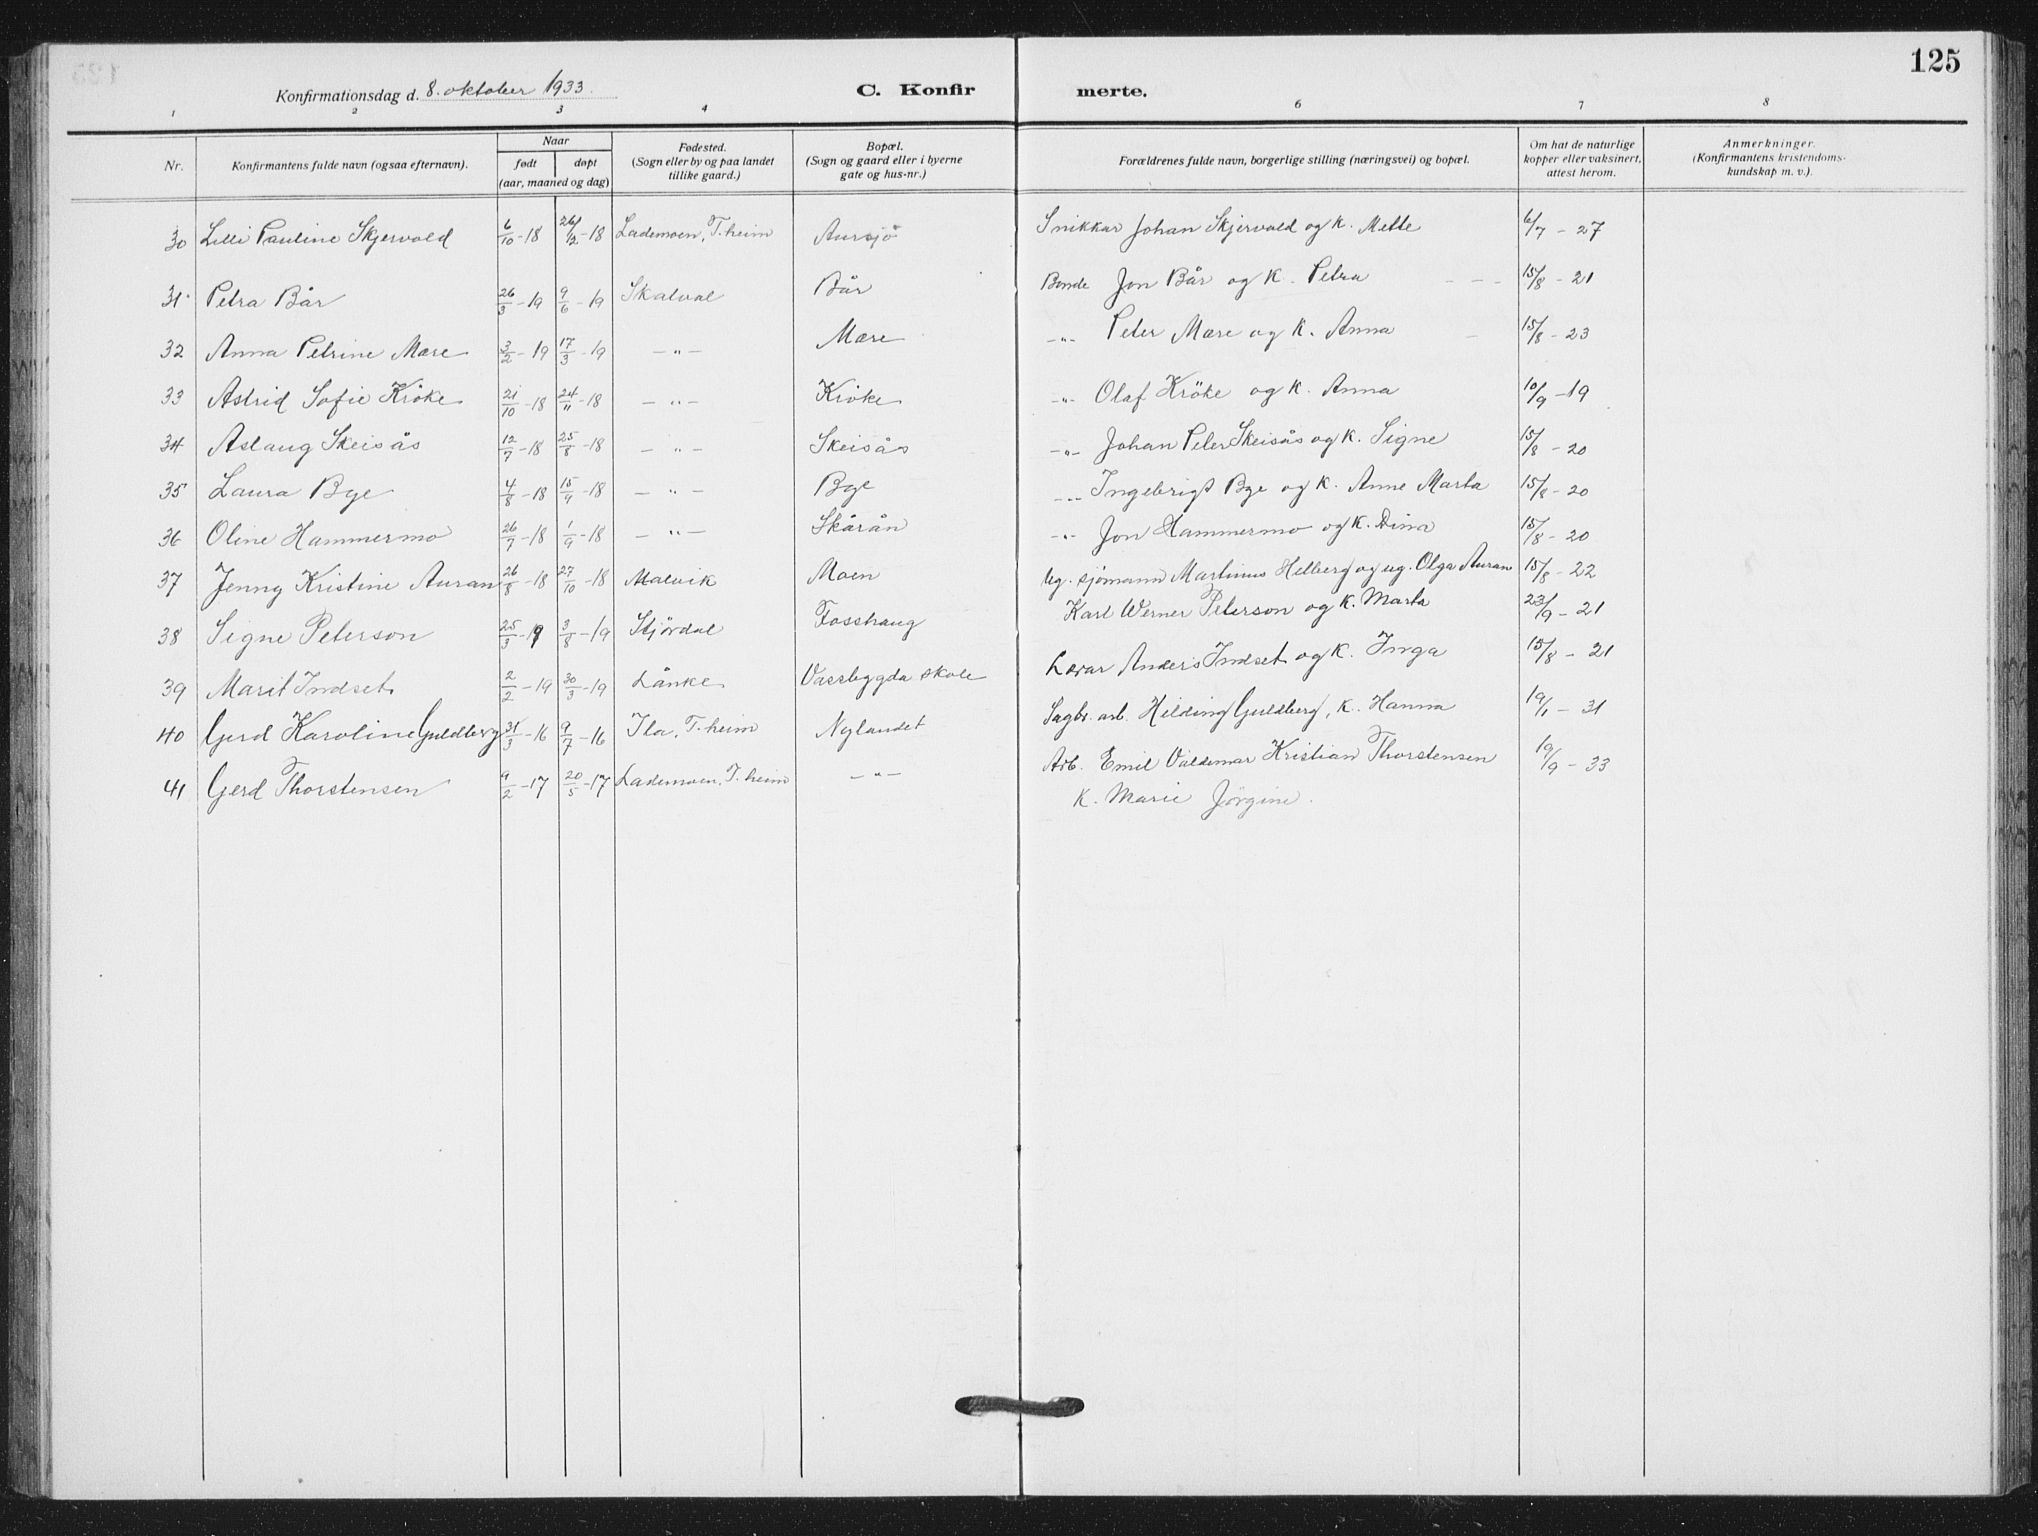 125
Konfirmationsdag d. 8. oktober 1933. C. Konfir merte.
1 2 3 4 6 7 8
Nr. Konfirmantens fulde navn (ogsaa efternavn). Naar født døpt (aar, maaned og dag) Fødested. (Sogn eller by og paa landet tillike gaard.) Bopæl. (Sogn og gaard eller i byerne gate og hus-nr.) Forældrenes fulde navn, borgerlige stilling (næringsvei) og bopæl. Om hat de naturlige kopper eller vaksinert, attest herom. Anmerkninger. (Konfirmantens kristendoms-kundskap m. v.).
30 Lilli Pauline Skjervold 6/10-18 26/12-18 Lademoen, T.heim Aursjö Snikkar Johan Skjervold og K. Mette 6/7-27
31 Petra Bår 26/3-19 9/6-19 Skatval Bår Bonde Jon Bår og K. Petra - - - 15/8-21
32 Anna Petrine Mære 3/2-19 17/3-19 -"- Mære -"- Peter Mære og K. Anna - 15/8-23
33 Astrid Sofie Kröke 21/10-18 24/11-18 -"- Kröke -"- Olaf Kröke og K. Anna 10/9-19
34 Aslaug Skeisås 12/7-18 25/8-18 -"- Skeisås -"- Johan Peter Skeisås og K. Signe 15/8-20
35 Laura Bye 4/8-18 15/9-18 -"- Bye -"- Ingebrigt Bye og K. Anne Marta 15/8-20
36 Oline Hammermo 26/7-18 1/9-18 -"- Skårån -"- Jon Hammermo og K. Dina 15/8-20
37 Jenny Kristine Auran 26/8-18 27/10-18 Malvik Moen Ug. sjömann Martinus Helberg og ug. Olga Auran 15/8-22
38 Signe Peterson 25/3-19 3/8-19 Stjördal Fosshaug Karl Werner Peterson og K. Marta 23/9-21
39 Marit Indset 2/2-19 30/3-19 Lånke Vassbygda skole Lærar Anders Indset og K. Inga 15/8-21
40 Gerd Karoline Guldberg 31/3-16 9/7-16 Ila, T.heim Nylandet Sagbr. arb. Hilding Guldberg, K. Hanna 19/1-31
41 Gerd Thorstensen 9/2-17 20/5-17 Lademoen, T.heim -"- Arb. Emil Valdemar Kristian Thorstensen 19/9-33
K. Marie Jörgine.